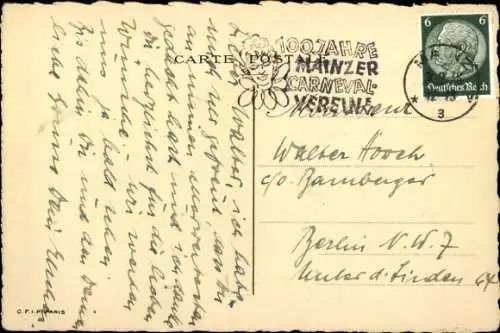 CARTE POSTALE
100 JAHRE
MAINZER
CARNEVAL-
VEREIN!
MAINZ
3
6 6
Deutsches Reich
Walter Hooch
c/o Bamberger
Berlin N.W. 7
Unter d. Linden 64
Lieber Walter, ich habe
mich so gefreut, dass Du
an meinen
gedacht hast und ich danke
Dir herzlichst für die lieben
Wünsche - wir werden
uns ja bald sehen.
Bis dahin Dir und den Deinen
liebe Grüsse Dein
C.F.I. PARIS